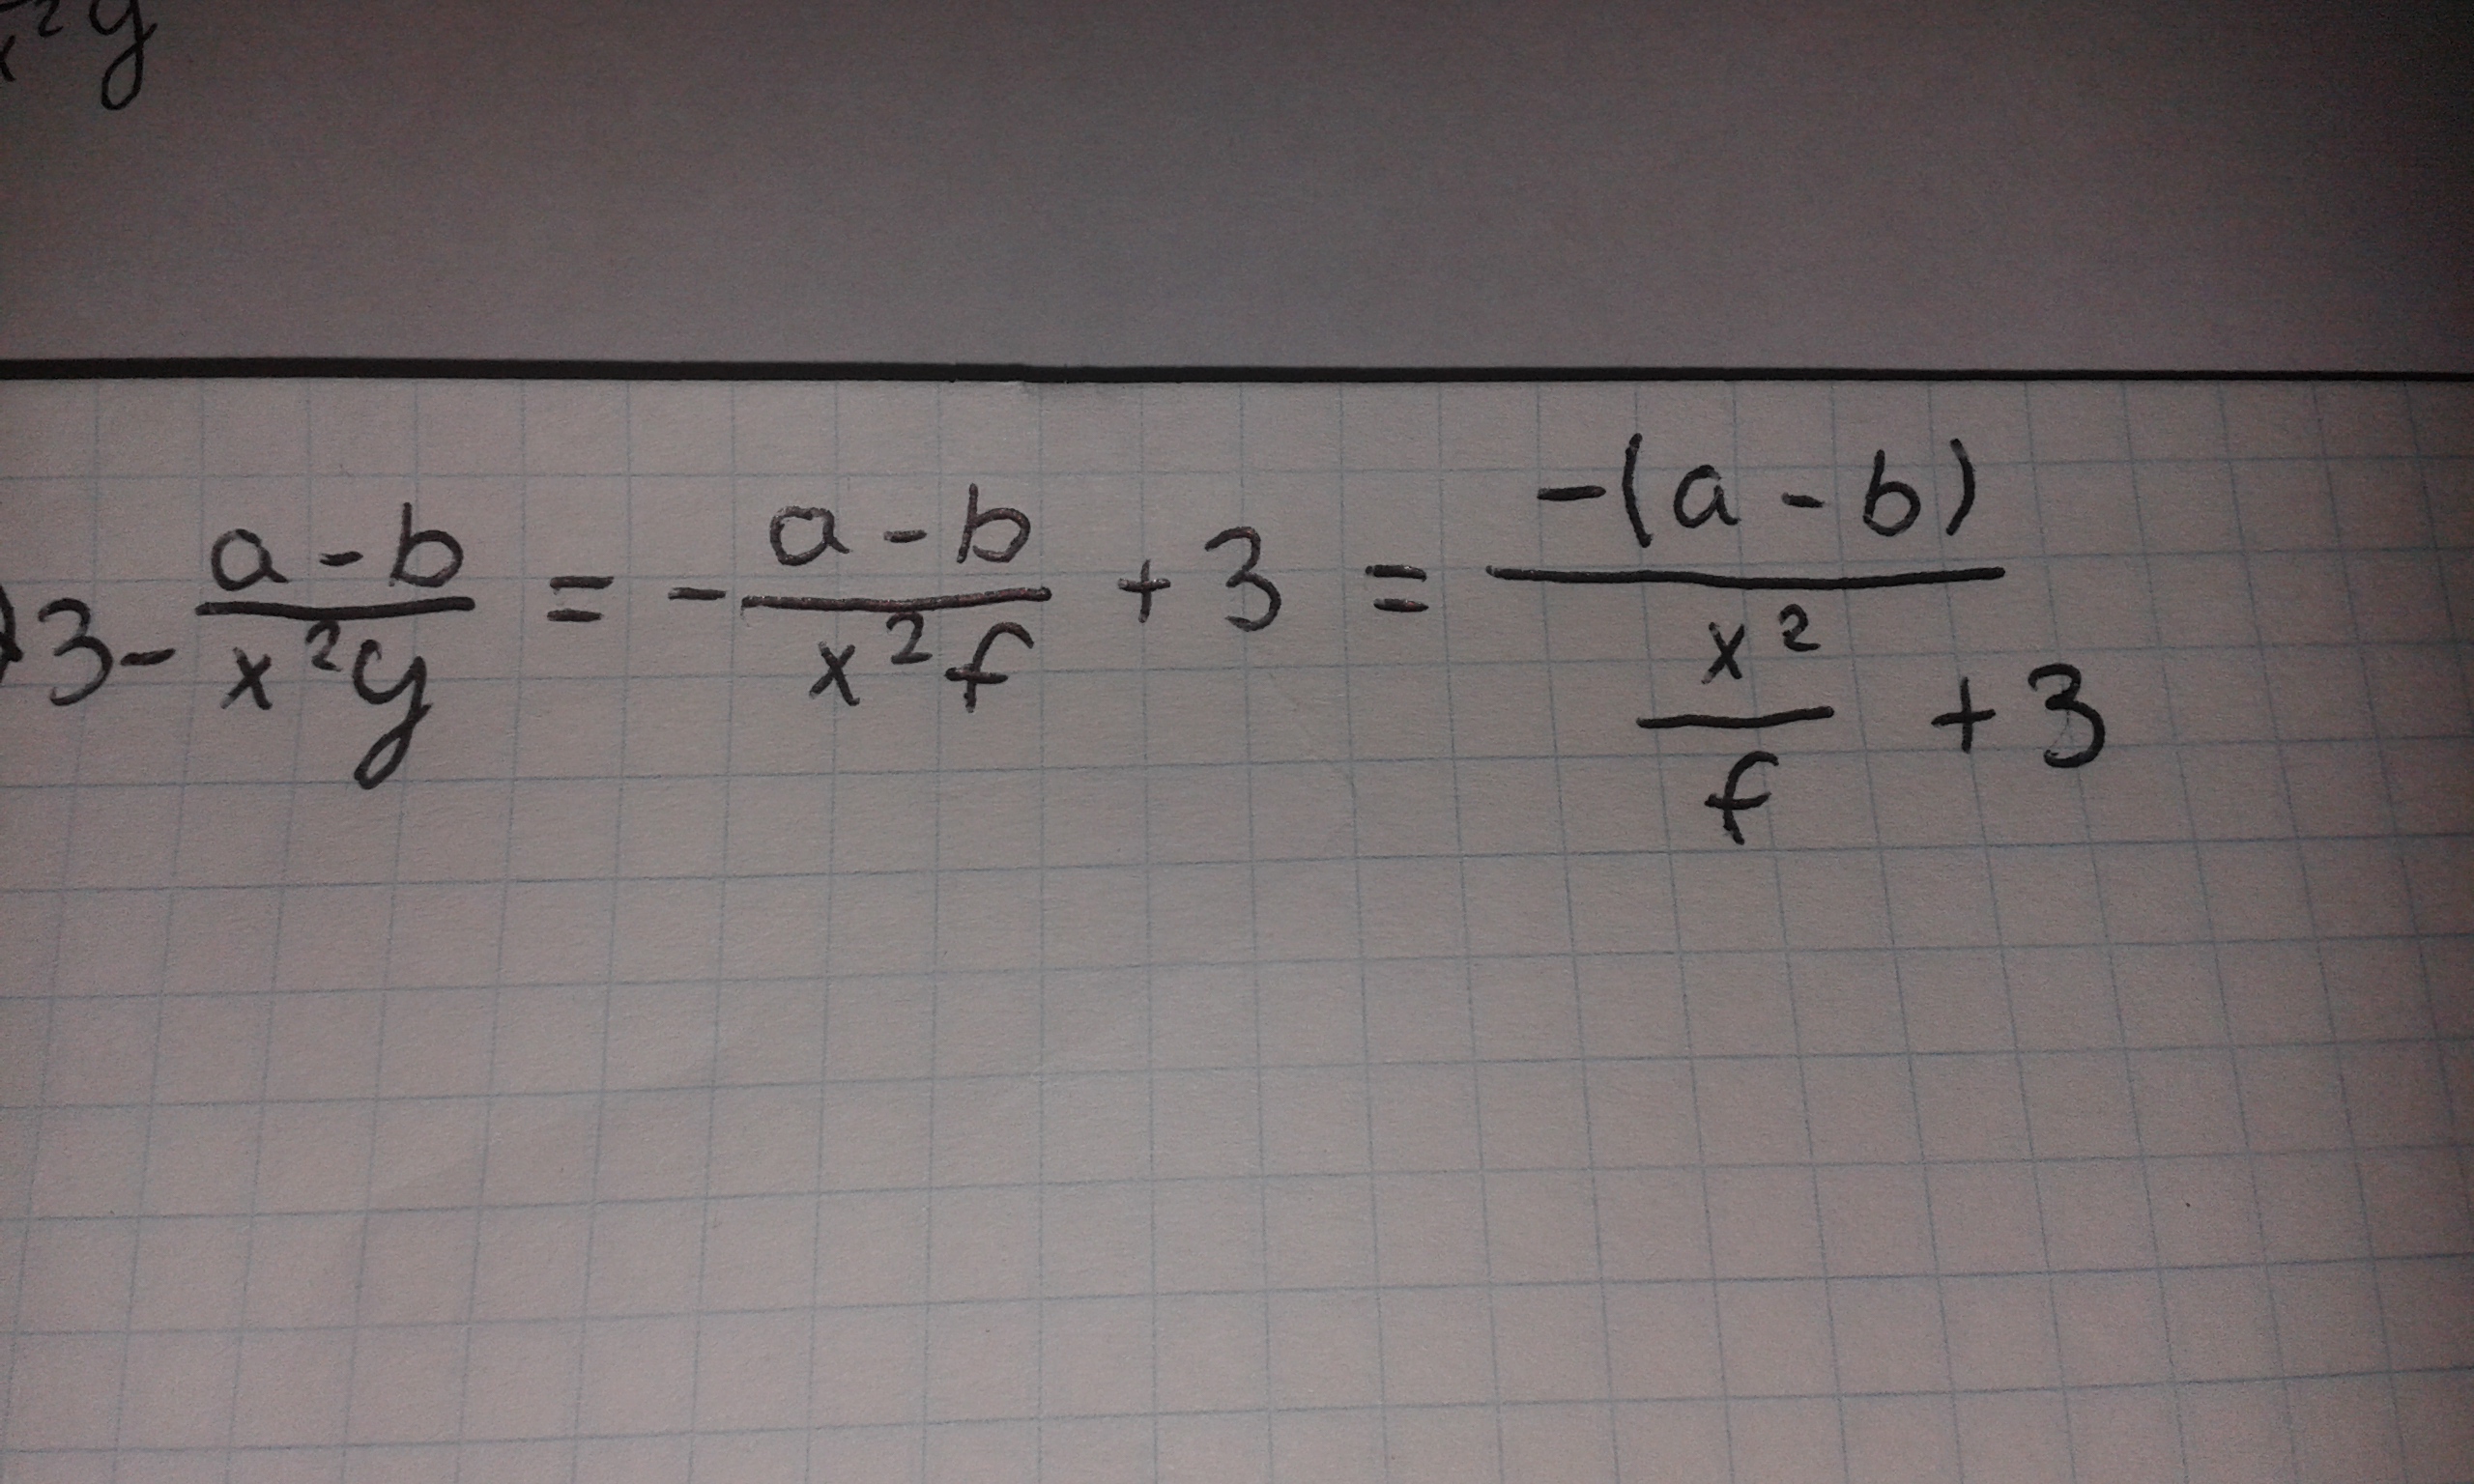 x²y
3 - (a - b)/(x²y) = - (a - b)/(x²f) + 3 = (-(a - b))/(x²/f + 3)